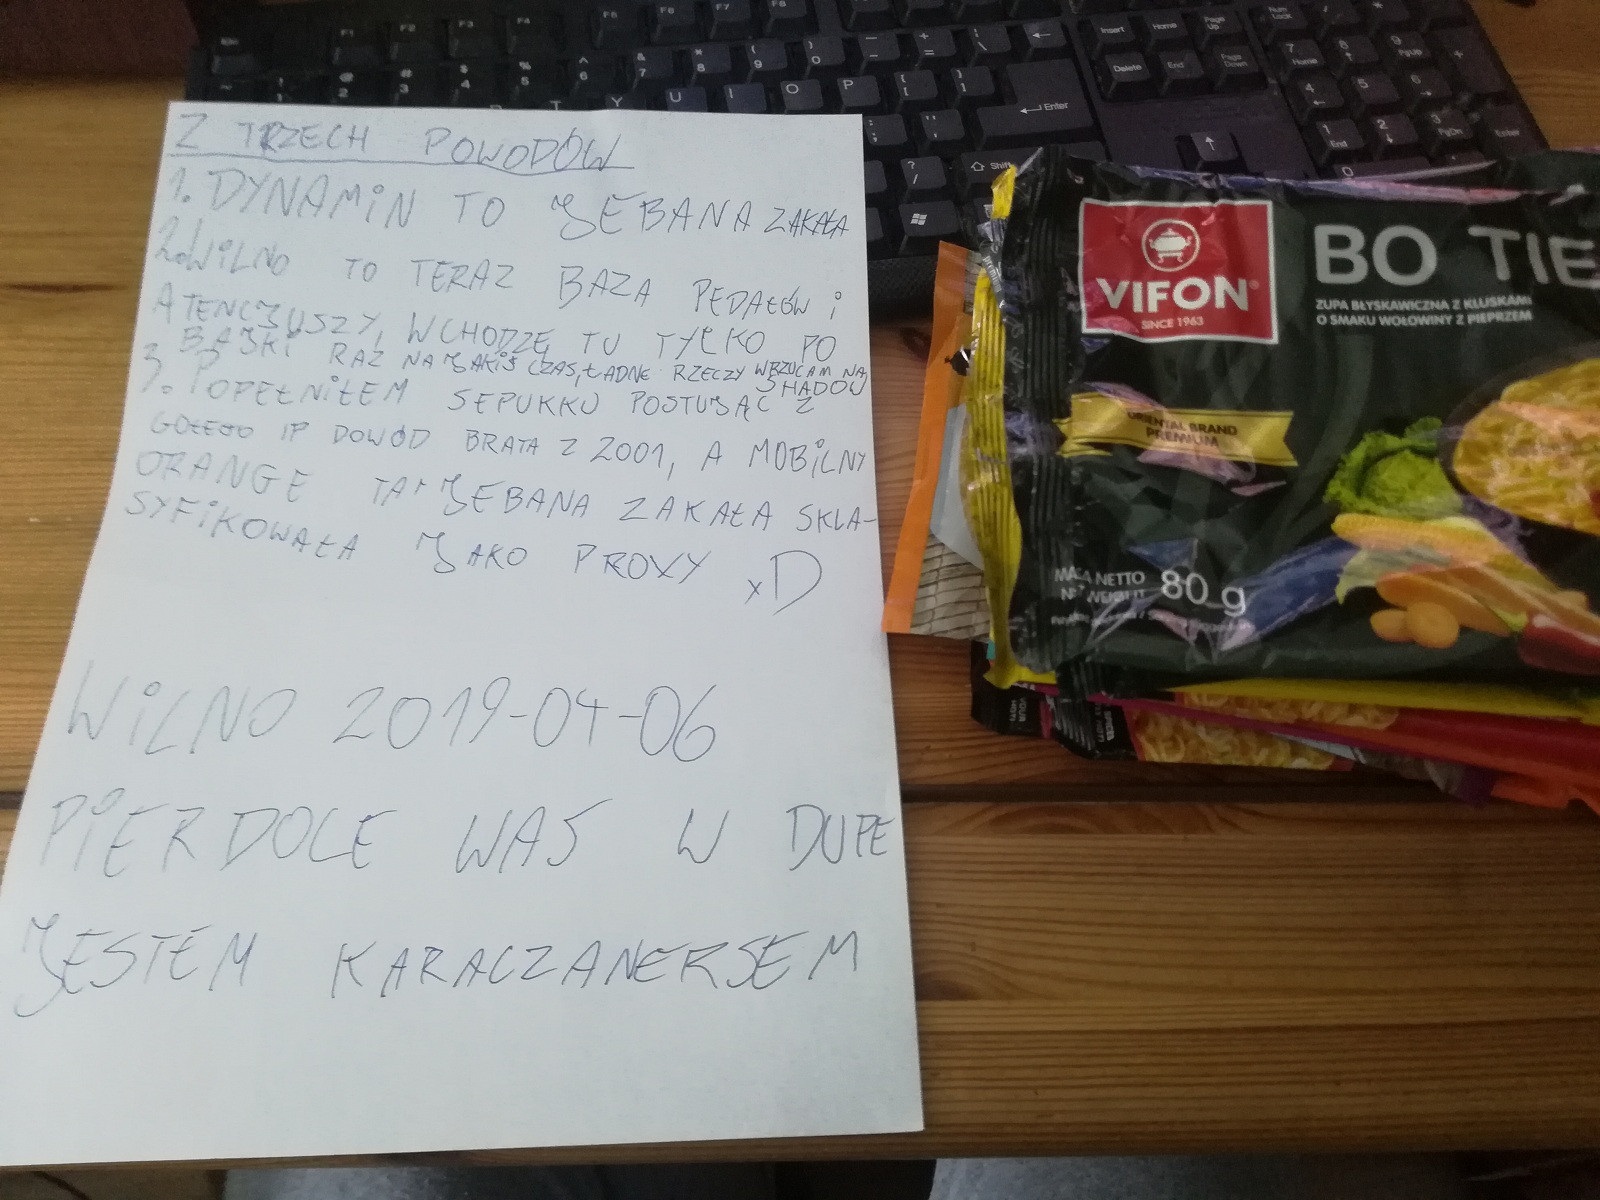 Z TRZECH POWODÓW
1. DYNAMiN TO JEBANA ZAKAŁA
2. WiLNO TO TERAZ BAZA PEDAŁÓW i
ATENCJUSZY, WCHODZĘ TU TYLKO PO
BAJKI RAZ NA JAKiŚ CZAS, ŁADNE RZECZY WRZUCAM NA
SHADOW
3. POPEŁNiŁEM SEPUKKU POSTUJĄC Z
GOŁEGO IP DOWÓD BRATA Z 2001, A MOBiLNY
ORANGE TA JEBANA ZAKAŁA SKLA-
SYFiKOWAŁA JAKO PROXY xD
WiLNO 2019-04-06
PiERDOLE WAS W DUPE
JESTEM KARACZANERSEM
VIFON
SINCE 1963
BO TIE
ZUPA BŁYSKAWICZNA Z KLUSKAMI
O SMAKU WOŁOWINY Z PIEPRZEM
ORIENTAL BRAND
PREMIUM
MASA NETTO
NET WEIGHT
80 g
F1 F2 F3 F4 F5 F6 F7 F8
Insert Home Page Up
Delete End Page Down
Num Lock
Enter
Shift
7 Home 8 9 PgUp
4 5 6
1 End 2 3 PgDn Enter
0